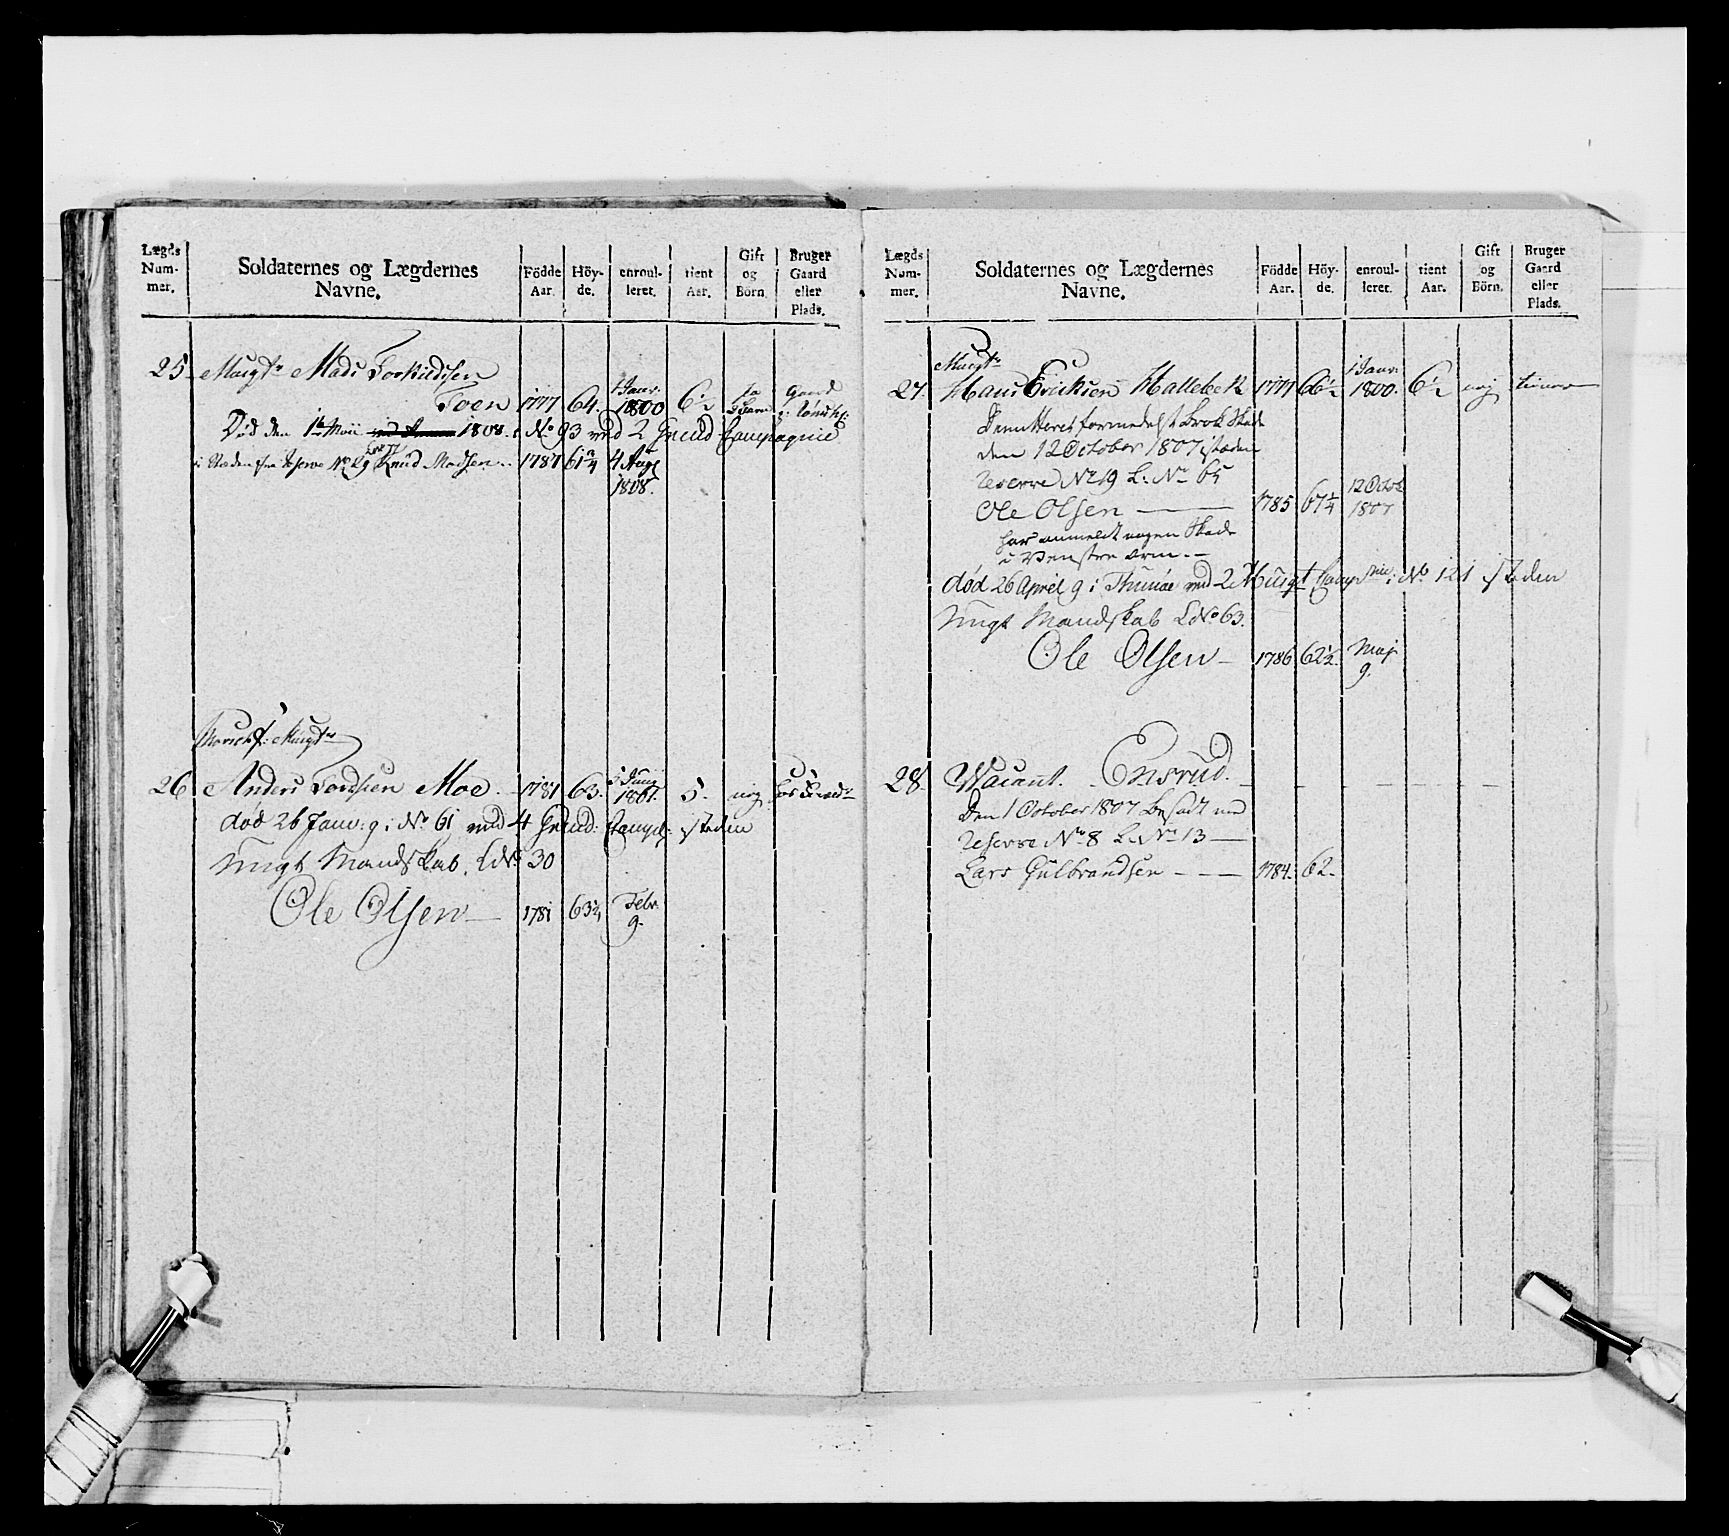 Lægds
Num-
mer.
Soldaternes og Lægdernes
Navne.
Födde
Aar.
Höy-
de.
enroul-
leret.
tient
Aar.
Gift
og
Börn.
Bruger
Gaard
eller
Plads.
25 Musqt. Mads Torkildsen
Toen 1777 64. 1 Janr. 1800 6½ ja Gaard
Död den 1te Maii 1808. i No 93 ved 2 Grend Compagnie
i Steden fra Reserve No 29 Knud Madsen 1787 61¾ 4 Aug 1808.
Musqtr
26 Anders Torstsen Moe. 1781 63. 5 Junij 1801. 5. nej
död 26 Janv: 9 i No 61 ved 4 Grend: Compg: steden
Ungt Mandskab. LNo 30
Ole Olsen 1781 63¼ Febr. 9.
Lægds
Num-
mer.
Soldaternes og Lægdernes
Navne.
Födde
Aar.
Höy-
de.
enroul-
leret.
tient
Aar.
Gift
og
Börn.
Bruger
Gaard
eller
Plads.
Musqtr
27. Hans Ericksen Hallebek 1777 66½ 1 Janr: 1800. 6½ nej tiener
formedelst Brok Skade
den 12 October 1807 isteden
Reserve No 19 L: No 65
Ole Olsen 1785 67¼ 12 Octob 1807
har anmeldt nogen Skade
i Venstre Arm.
död 26 April 9 i ved 2 Musqt Comp nie: No 121 steden
Ungt Mandskab LNo 63.
Ole Olsen 1786 62½. Maj 9.
28. Vacant. Ensrud.
Den 1 October 1807 besadt med
Reserve No 8 L. No 13
Lars Gulbrandsen 1784. 62.